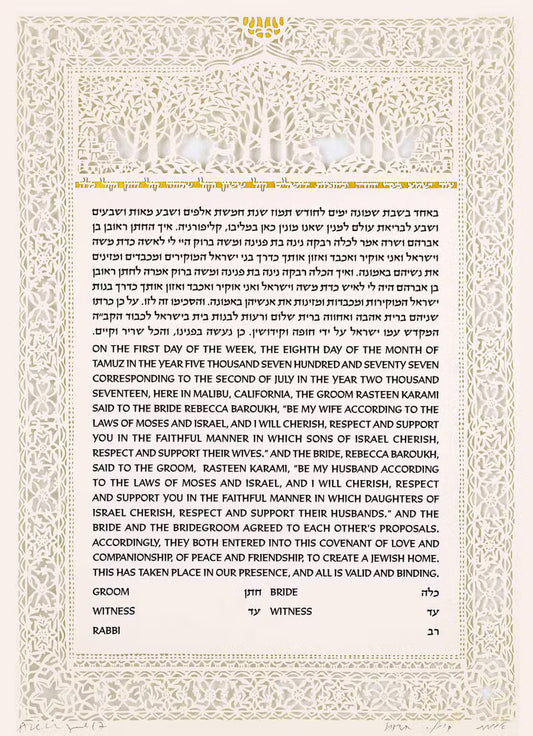 עוד ישמע בערי יהודה ובחוצות ירושלים קול ששון וקול שמחה קול חתן וקול כלה
באחד בשבת שמונה ימים לחודש תמוז שנת חמשת אלפים ושבע מאות ושבעים
ושבע לבריאת עולם למנין שאנו מונין כאן במליבו, קליפורניה. איך החתן ראובן בן
אברהם ושרה אמר לכלה רבקה נינה בת פנינה ומשה ברוק היי לי לאשה כדת משה
וישראל ואני אוקיר ואכבד ואזון אותך כדרך בני ישראל המוקירים ומכבדים ומזינים
את נשיהם באמונה. ואיך הכלה רבקה נינה בת פנינה ומשה ברוק אמרה לחתן ראובן
בן אברהם היה לי לאיש כדת משה וישראל ואני אוקיר ואכבד ואזון אותך כדרך בנות
ישראל המוקירות ומכבדות ומזינות את אנשיהן באמונה. והסכימו זה לזו. על כן כרתו
שניהם ברית אהבה ואחווה ברית שלום ורעות לבנות בית בישראל לכבוד הקב״ה
המקדש עמו ישראל על ידי חופה וקידושין. כן נעשה בפנינו, והכל שריר וקיים.
ON THE FIRST DAY OF THE WEEK, THE EIGHTH DAY OF THE MONTH OF
TAMUZ IN THE YEAR FIVE THOUSAND SEVEN HUNDRED AND SEVENTY SEVEN
CORRESPONDING TO THE SECOND OF JULY IN THE YEAR TWO THOUSAND
SEVENTEEN, HERE IN MALIBU, CALIFORNIA, THE GROOM RASTEEN KARAMI
SAID TO THE BRIDE REBECCA BAROUKH, "BE MY WIFE ACCORDING TO THE
LAWS OF MOSES AND ISRAEL, AND I WILL CHERISH, RESPECT AND SUPPORT
YOU IN THE FAITHFUL MANNER IN WHICH SONS OF ISRAEL CHERISH,
RESPECT AND SUPPORT THEIR WIVES." AND THE BRIDE, REBECCA BAROUKH,
SAID TO THE GROOM, RASTEEN KARAMI, "BE MY HUSBAND ACCORDING
TO THE LAWS OF MOSES AND ISRAEL, AND I WILL CHERISH, RESPECT
AND SUPPORT YOU IN THE FAITHFUL MANNER IN WHICH DAUGHTERS OF
ISRAEL CHERISH, RESPECT AND SUPPORT THEIR HUSBANDS." AND THE
BRIDE AND THE BRIDEGROOM AGREED TO EACH OTHER'S PROPOSALS.
ACCORDINGLY, THEY BOTH ENTERED INTO THIS COVENANT OF LOVE AND
COMPANIONSHIP, OF PEACE AND FRIENDSHIP, TO CREATE A JEWISH HOME.
THIS HAS TAKEN PLACE IN OUR PRESENCE, AND ALL IS VALID AND BINDING.
GROOM חתן BRIDE כלה
WITNESS עד WITNESS עד
RABBI רב